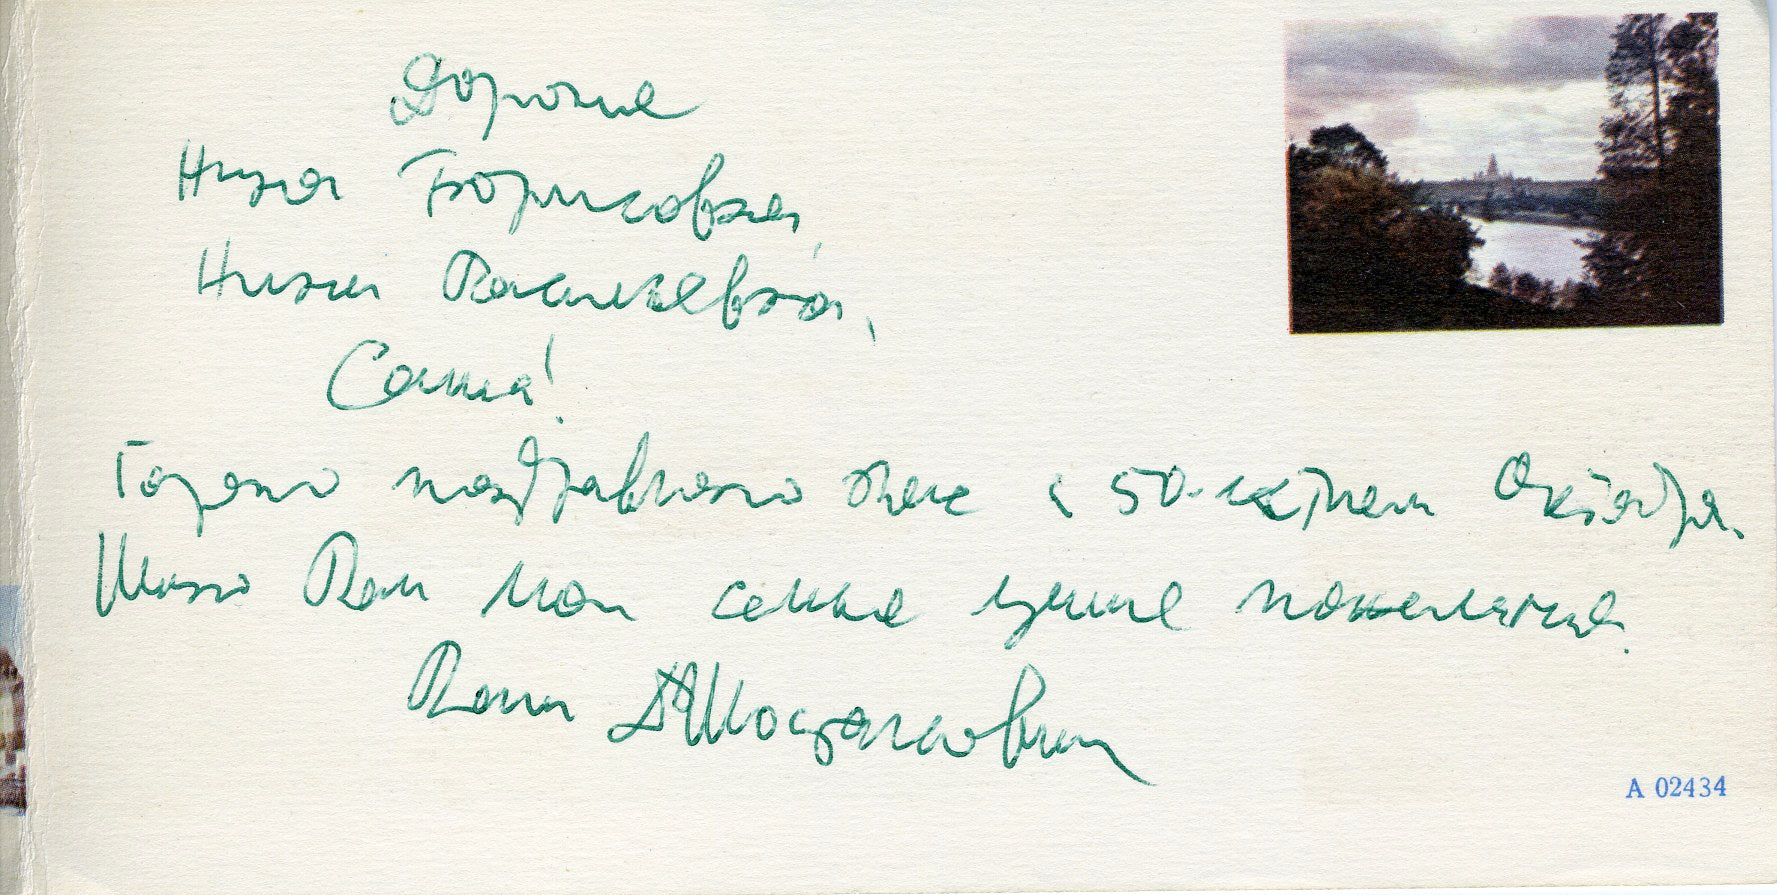 Дорогие
Нина Борисовна,
Нина Васильевна,
Саша!
Горячо поздравляю Вас с 50-летием Октября.
Шлю Вам мои самые лучшие пожелания.
Ваш Д Шостакович
А 02434